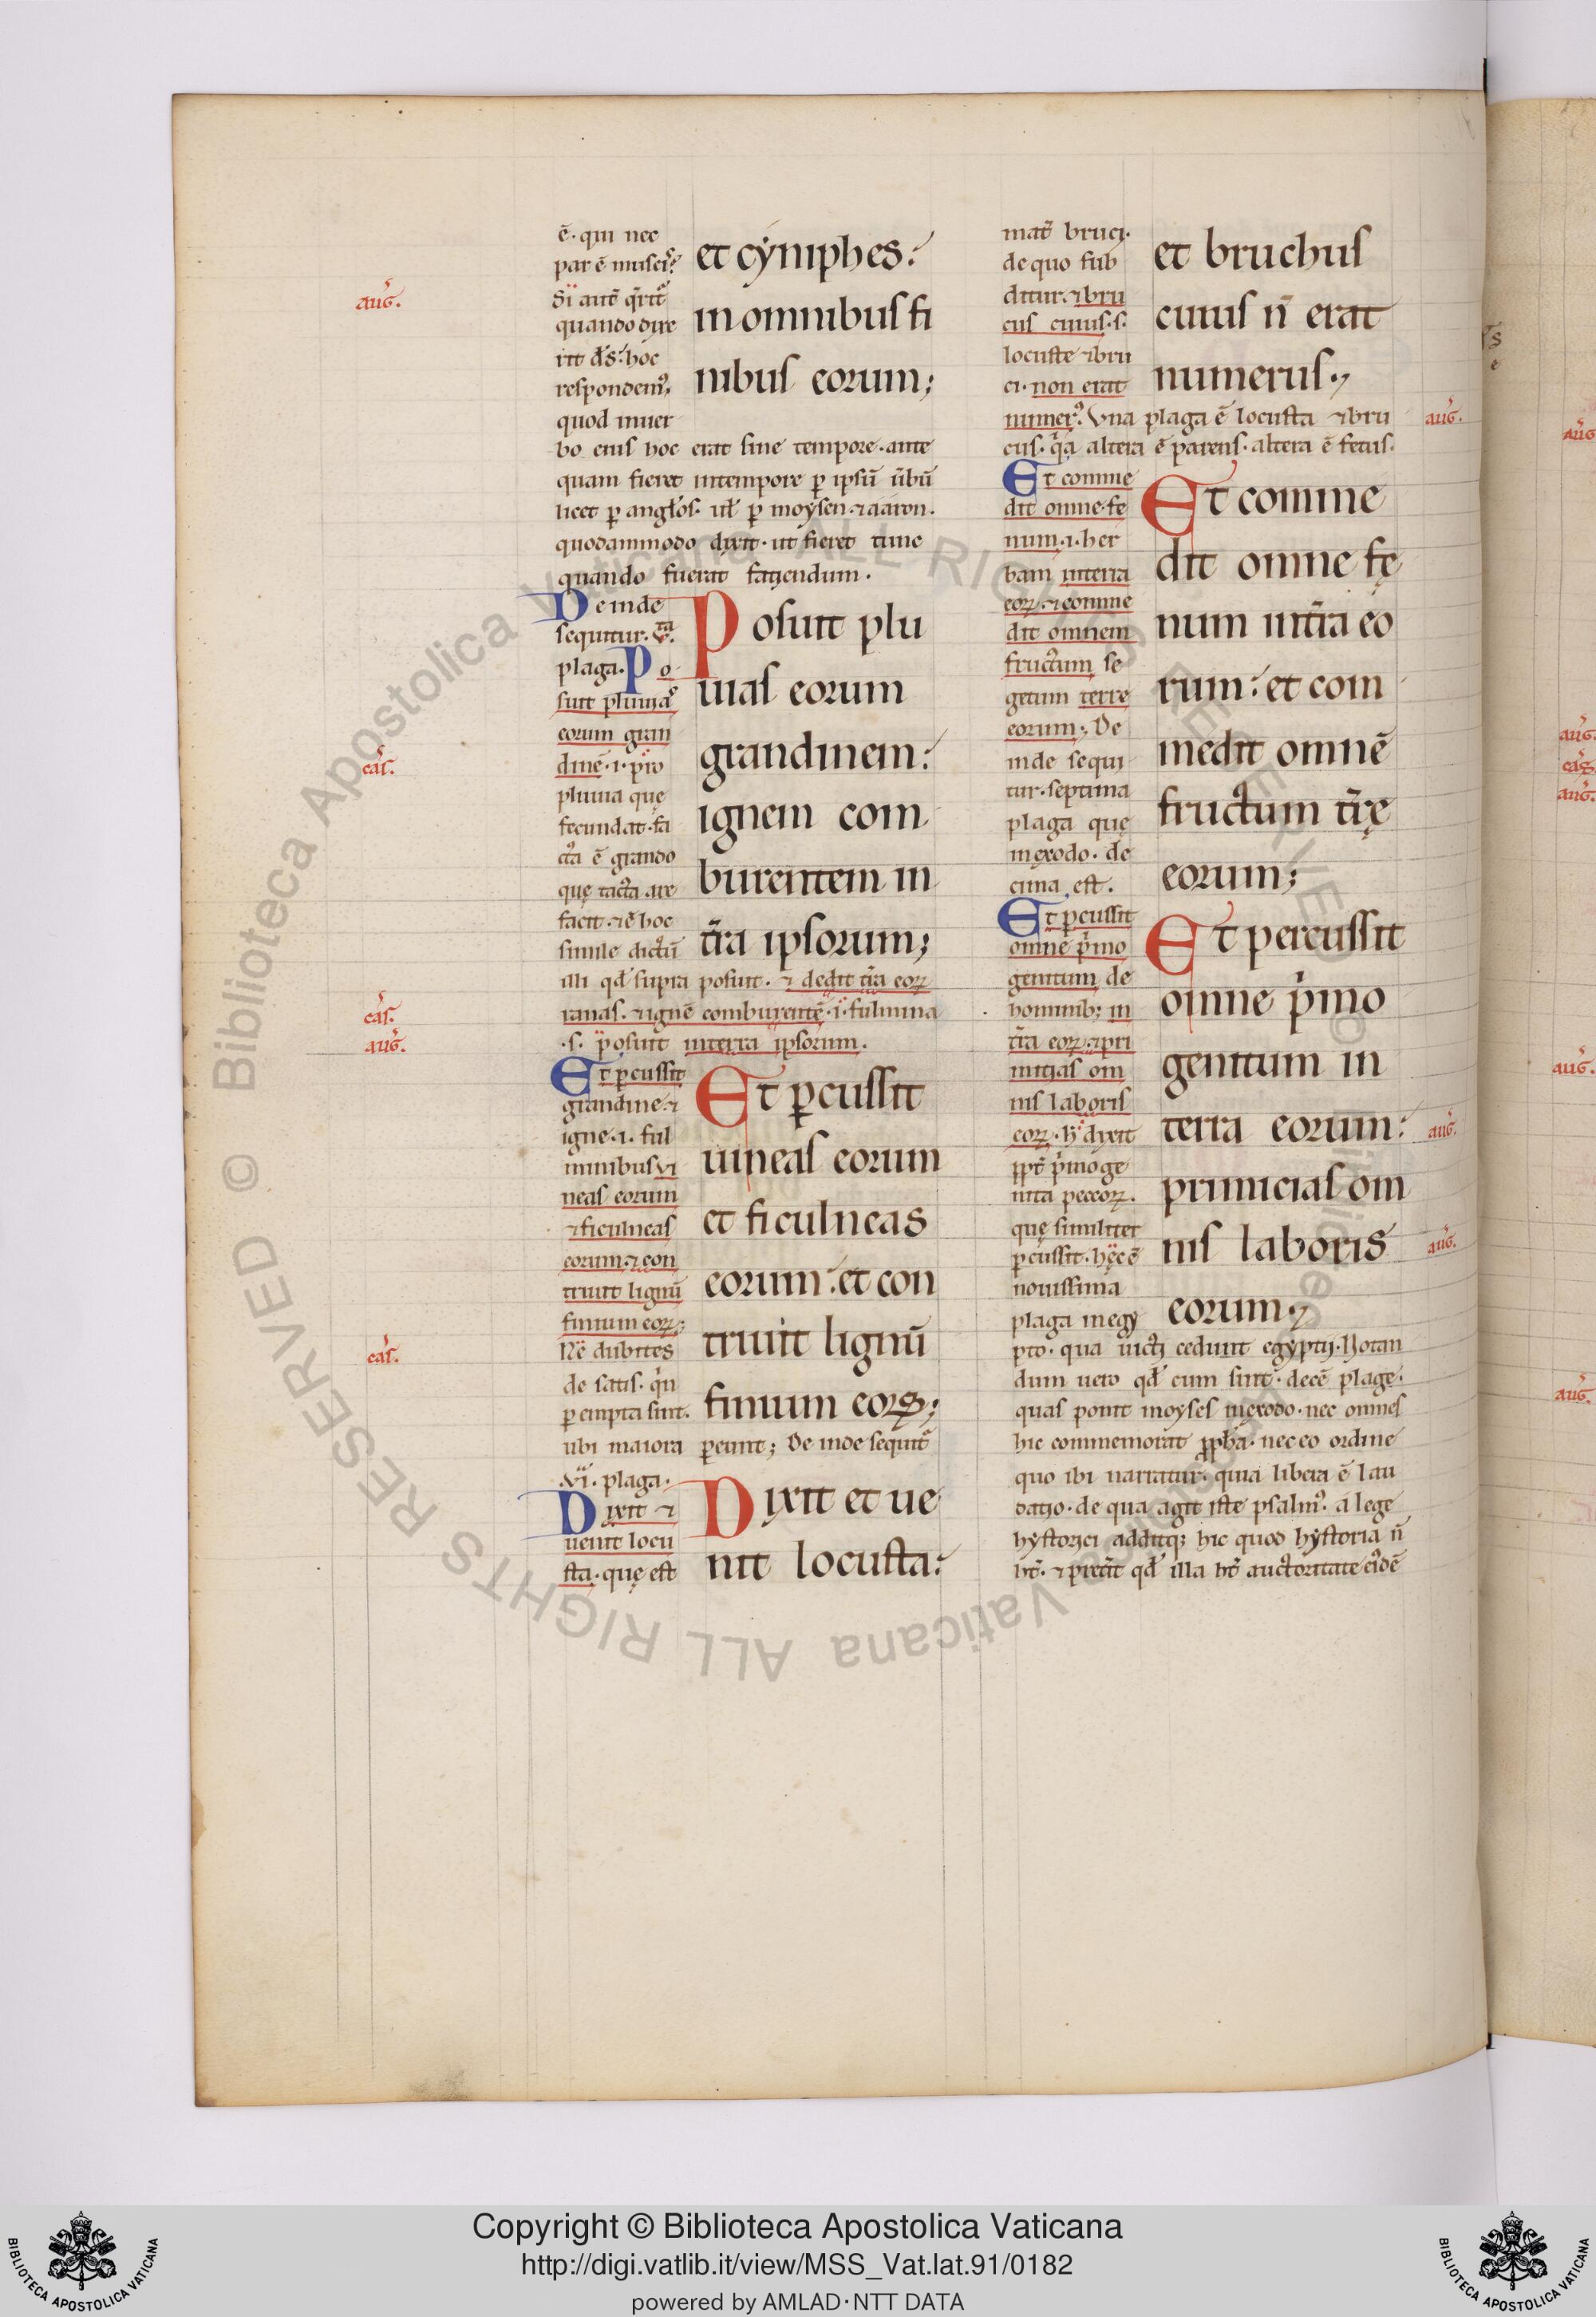 ē. qui nec
par ē muscis?
Si autē q̄rit᷑
quando dixe
rit d̄s: hoc
respondem᷒;
quod in uer
bo eius hoc erat sine tempore. ante
quam fieret in tempore p̱ ipsū ūbū
licet p̱ angłos. uł p̱ moẏsen ⁊ aaron.
quodammodo dixit. ut fieret tunc
quando fuerat faciendum.
et cẏniphes:
in omnibus fi
nibus eorum;
Deinde
sequitur .v.ta
plaga. Po
suit pluuias
eorum gran
dinē. i. p̄ro
pluuia quę
fecundat. fa
cta ē grando
quę tacta are
facit. ⁊ ē hoc
simile dictū
illi qđ supra posuit. ⁊ dedit t̄ra eoꝝ
ranas. ⁊ ignē comburentē. i. fulmina
.s. posuit in terra ipsorum.
Posuit plu
uias eorum
grandinem:
ignem com
burentem in
t̄ra ipsorum;
Et p̱cussit
grandine ⁊
igne. i. ful
minibus ui
neas eorum
⁊ ficulneas
eorum: ⁊ con
triuit lignū
finium eoꝝ;
Ne dubites
de satis. qn̄
p̱empta sunt.
ubi maiora p̱eunt; Deinde sequit᷑
.vi. plaga.
Et p̱cussit
uineas eorum
et ficulneas
eorum: et con
triuit lignū
finium eoꝝ;
Dixit ⁊
uenit locu
sta. quę est
Dixit et ue
nit locusta:
mat̄ bruci.
de quo sub
ditur. ⁊ bru
cus cuius .s.
locuste ⁊ bru
ci. non erat
numer᷒. Vna plaga ē locusta ⁊ bru
cus. q̇a altera ē parens. altera ē fetus.
et bruchus
cuius n̄ erat
numerus.
Et comme
dit omne fe
num .i. her
bam in terra
eoꝝ. ⁊ comme
dit omnem
fructum se
getum terre
eorum; De
inde sequi
tur. septima
plaga quę
in exodo. de
cima est.
Et comme
dit omne fę
num in t̄ra eo
rum: et com
medit omnē
fructum t̄rę
eorum;
Et p̱cussit
omne p̍mo
genitum de
hominib; in
t̄ra eoꝝ. ⁊ pri
mitias om
nis laboris
eoꝝ. h̊ dixit
p̱pt̄ p̍moge
nita peccoꝝ.
quę similiter
p̱cussit. hęc ē
nouissima
plaga in egẏ
pto. qua uicti cedunt egẏptij. Notan
dum uero qđ cum sint decē plage.
quas ponit moẏses in exodo. nec omnes
hic commemorat ꝓph̄a. nec eo ordine
quo ibi narratur. quia libera ē lau
datio. de qua agit iste psalm᷒. a lege
hẏstorici additq; hic quod hẏstoria n̄
ht̄. ⁊ pret̄it qđ illa ht̄ auctoritate eiᵈē
Et percussit
omne p̍mo
genitum in
terra eorum:
primicias om
nis laboris
eorum.
aug̃.
cas̃.
cas̃.
aug̃.
cas̃.
aug̃.
aug̃.
aug̃.
aug̃
aug̃.
cas̃
aug̃.
aug̃.
aug̃.
© Biblioteca Apostolica Vaticana ALL RIGHTS RESERVED © Biblioteca Apostolica Vaticana ALL RIGHTS RESERVED
Copyright © Biblioteca Apostolica Vaticana
http://digi.vatlib.it/view/MSS_Vat.lat.91/0182
powered by AMLAD·NTT DATA
BIBLIOTECA APOSTOLICA VATICANA
BIBLIOTECA APOSTOLICA VATICANA